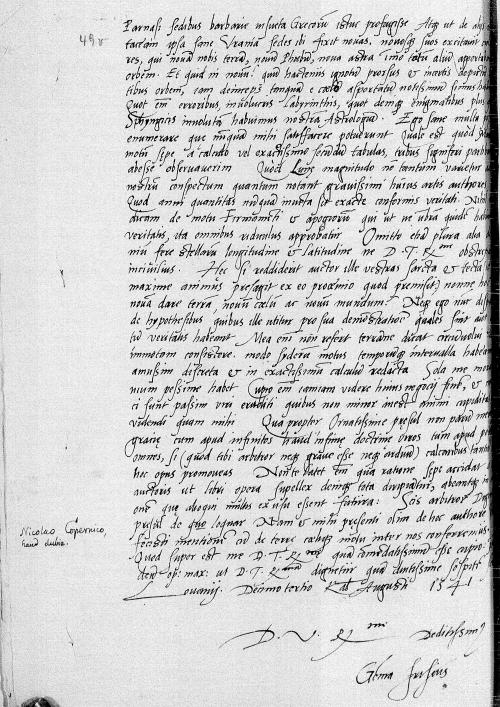 49v
Parnasi sedibus barbarie insueta Grecorum istuc profugisse Atque ut de alijs
taceam ipsa sane Urania sedes ibi fixit novas, novosque suos excitavit
res, qui novam nobis terram, novum Phebum, nova astra imo totum alium apportabit
orbem. Et quid ni novum? quum hactenus ignotum prorsus et incertis
tibus orbem, iam deinceps tanquam e caelo asportatum notissimum simus
Quot enim erroribus, involucris labyrinthis, quot denique enigmatibus plus
Sphyngicis involutam habuimus nostram Astrologiam. Ego sane multa
enumerare que nunquam mihi satisfacere potuerunt Quale est quod
motum sepe a calculo vel exactissimo secundum tabulas, tribus signiferi partibus
abesse observaverim Quod Lune magnitudo ne tantum varietur
nostrum conspectum quantum notant gravissimi huius artis authores
Quod anni quantitas nunquam inventa sit exacte conformis veritati.
dicam de motu Firmamenti et apogiorum qui ut ne umbram quidem habet
veritatis, ita omnibus ridiculus approbatur Omitto etiam plura alia
nium fere stellarum longitudine et latitudine ne D. T. R. obstrepam
inciuilius. Hec si reddiderit auctor ille vestras sarcta et tecta
maxime animus presagit ex eo proemio quod premisit) nonne hoc
novam dare terram, novum caelum ac novum mundum? Neque ego nunc
de hypothesibus quibus ille utitur pro sua demonstratione quales sint aut
tum veritatis habeant Mea enim non refert terramne dicat circumvolui
immotam consistere. modo sydera motus temporumque intervalla habeamus
amussim discreta et in exactissimum calculum redacta Sola me
nium pessime habet Cupio enim iamiam videre huius negocij finem, et
ci sunt passim viri eruditi quibus non minor inest animi cupiditas
videndi quam mihi Quapropter Ornatissime presul non parum
graciae cum apud infinitos haud infimae doctrine viros tum apud
omnes, si (quod tibi arbitror neque grave esse neque arduum) calcaribus
hoc opus promoveas Non te latet enim qua ratione sepe accidat
auctoris ut libri opera supellex denique tota diripiatur,
one que alioqui multis ex usu essent futura. Scis arbitror
presul de quo loquar Nam et mihi presenti olim de hoc authore
fecisti mentionem cum de terre caelique motu inter nos conferremus
Quod super est me D. T. R. quam commodatissimum esse cupio
deum opt: max: ut D. T. R. dignetur quam diutissime sospitem
Lovanij. Decimotertio Kal Augusti 1541
D. V. R. Deditissimus
Gemma Frisius
Nicolao Copernico,
haud dubie.